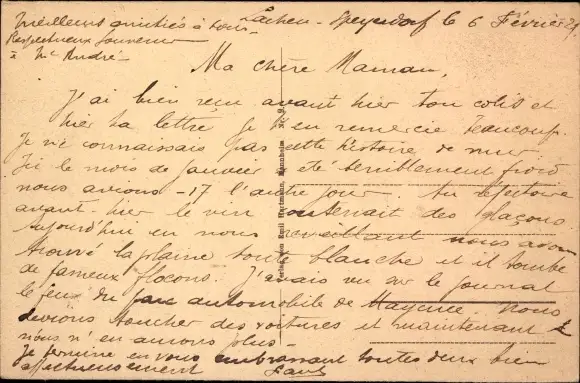 meilleures amitiés à tous
Respectueux Souvenir
à Mr André
Lachen-Speyerdorf le 6 Février
Ma chère Maman,
J'ai bien reçu avant hier ton colis et
hier ta lettre je t'en remercie beaucoup.
Je ne connaissais pas cette histoire de mur.
Ici le mois de janvier a été terriblement froid
nous avions -17 l'autre jour. Au réfectoire
avant-hier le vin contenait des glaçons.
Aujourd'hui en nous réveillant nous avons
trouvé la plaine toute blanche et il tombe
de fameux flocons. J'avais vu sur le journal
le feu du parc automobile de Mayence nous
devions toucher des voitures et maintenant
nous n'en aurons plus-
Je termine en vous embrassant toutes deux bien
affectueusement
Verlag von Emil Hartmann, Mannheim